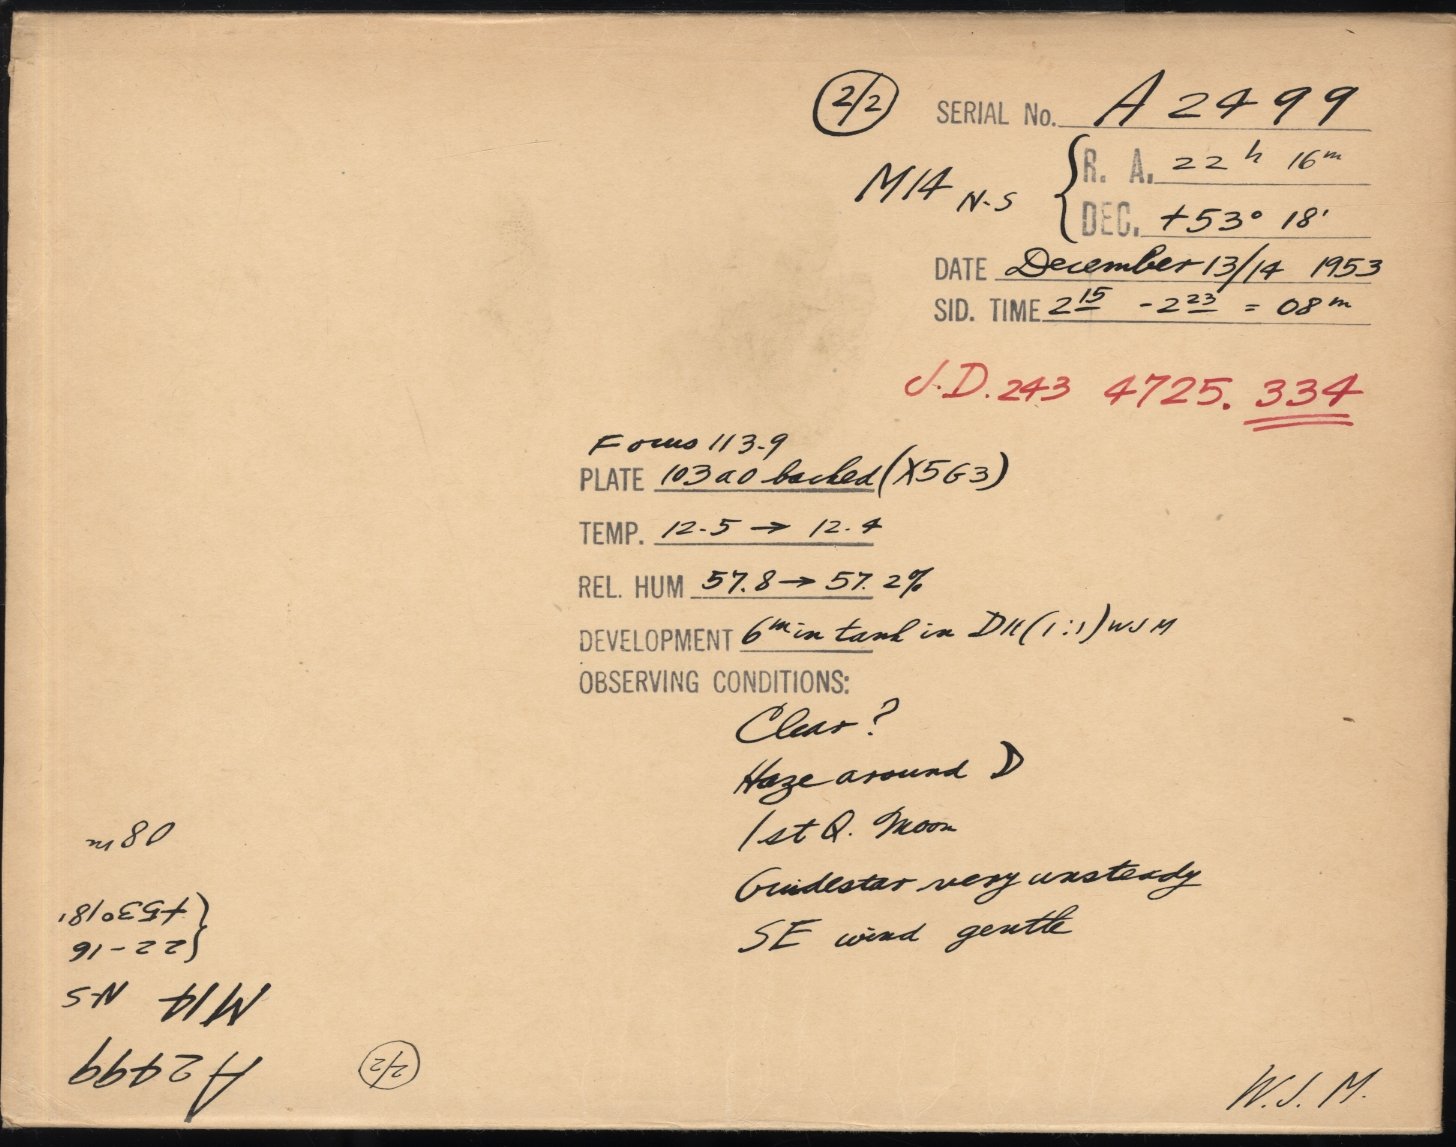 2/2 SERIAL No. A 2499
M14 N-S { R. A. 22 h 16 m
DEC. +53° 18'
DATE December 13/14 1953
SID. TIME 2 15 - 2 23 = 08 m
J.D. 243 4725. 334
Focus 113.9
PLATE 103 a O backed (X5G3)
TEMP. 12.5 → 12.4
REL. HUM 57.8 → 57.2%
DEVELOPMENT 6 m in tank in D11 (1:1) WJM
OBSERVING CONDITIONS:
Clear?
Haze around D
1st Q. Moon
Guidestar very unsteady
SE wind gentle
W.J.M.
2/2 A 2499
M14 N-S
{ 22-16
+53°18'
08 m